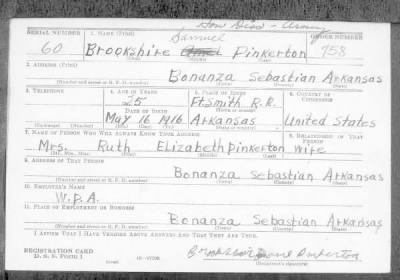 Hon Disc - Army
SERIAL NUMBER 1. NAME (Print) ORDER NUMBER
Samuel
60 Brookshire Pinkerton 958
(First) (Middle) (Last)
2. ADDRESS (Print)
Bonanza Sebastian Arkansas
(Number and street or R. F. D. number) (Town) (County) (State)
3. TELEPHONE 4. AGE IN YEARS 5. PLACE OF BIRTH 6. COUNTRY OF CITIZENSHIP
25 Ft Smith R.R.
DATE OF BIRTH (Town or county)
May 16 1916 Arkansas United States
(Exchange) (Number) (Mo.) (Day) (Yr.) (State or country)
7. NAME OF PERSON WHO WILL ALWAYS KNOW YOUR ADDRESS 8. RELATIONSHIP OF THAT PERSON
Mrs. Ruth Elizabeth Pinkerton Wife
(Mr., Mrs., Miss) (First) (Middle) (Last)
9. ADDRESS OF THAT PERSON
Bonanza Sebastian Arkansas
(Number and street or R. F. D. number) (Town) (County) (State)
10. EMPLOYER'S NAME
W.P.A.
11. PLACE OF EMPLOYMENT OR BUSINESS
Bonanza Sebastian Arkansas
(Number and street or R. F. D. number) (Town) (County) (State)
I AFFIRM THAT I HAVE VERIFIED ABOVE ANSWERS AND THAT THEY ARE TRUE.
REGISTRATION CARD
D. S. S. FORM 1
Pinkerton
(Registrant's signature)